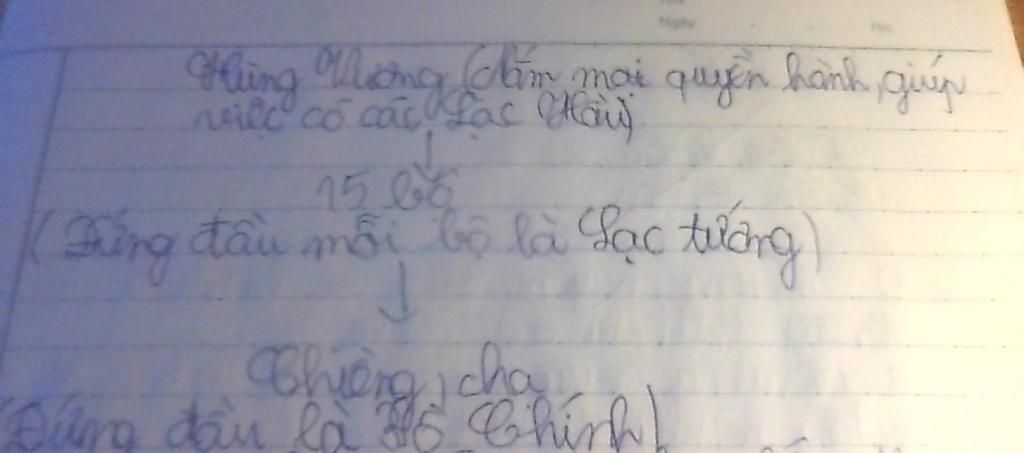 Ngày No.
Hùng Vương (Nắm mọi quyền hành, giúp
việc có các Lạc Hầu)
↓
15 bộ
(Đứng đầu mỗi bộ là Lạc tướng)
↓
Chiềng, chạ
(Đứng đầu là Bồ Chính)